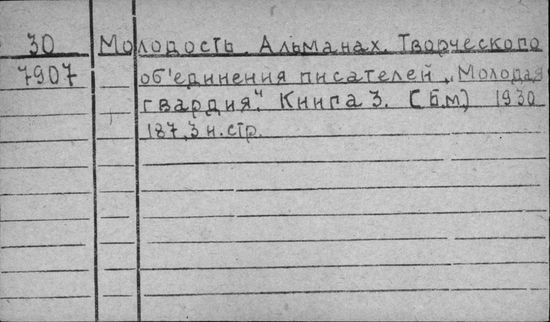 30 Молодость. Альманах. Творческого
7907 об'единения писателей „Молодая
гвардия". Книга 3. [Б.м] 1930
187,3 н.стр.